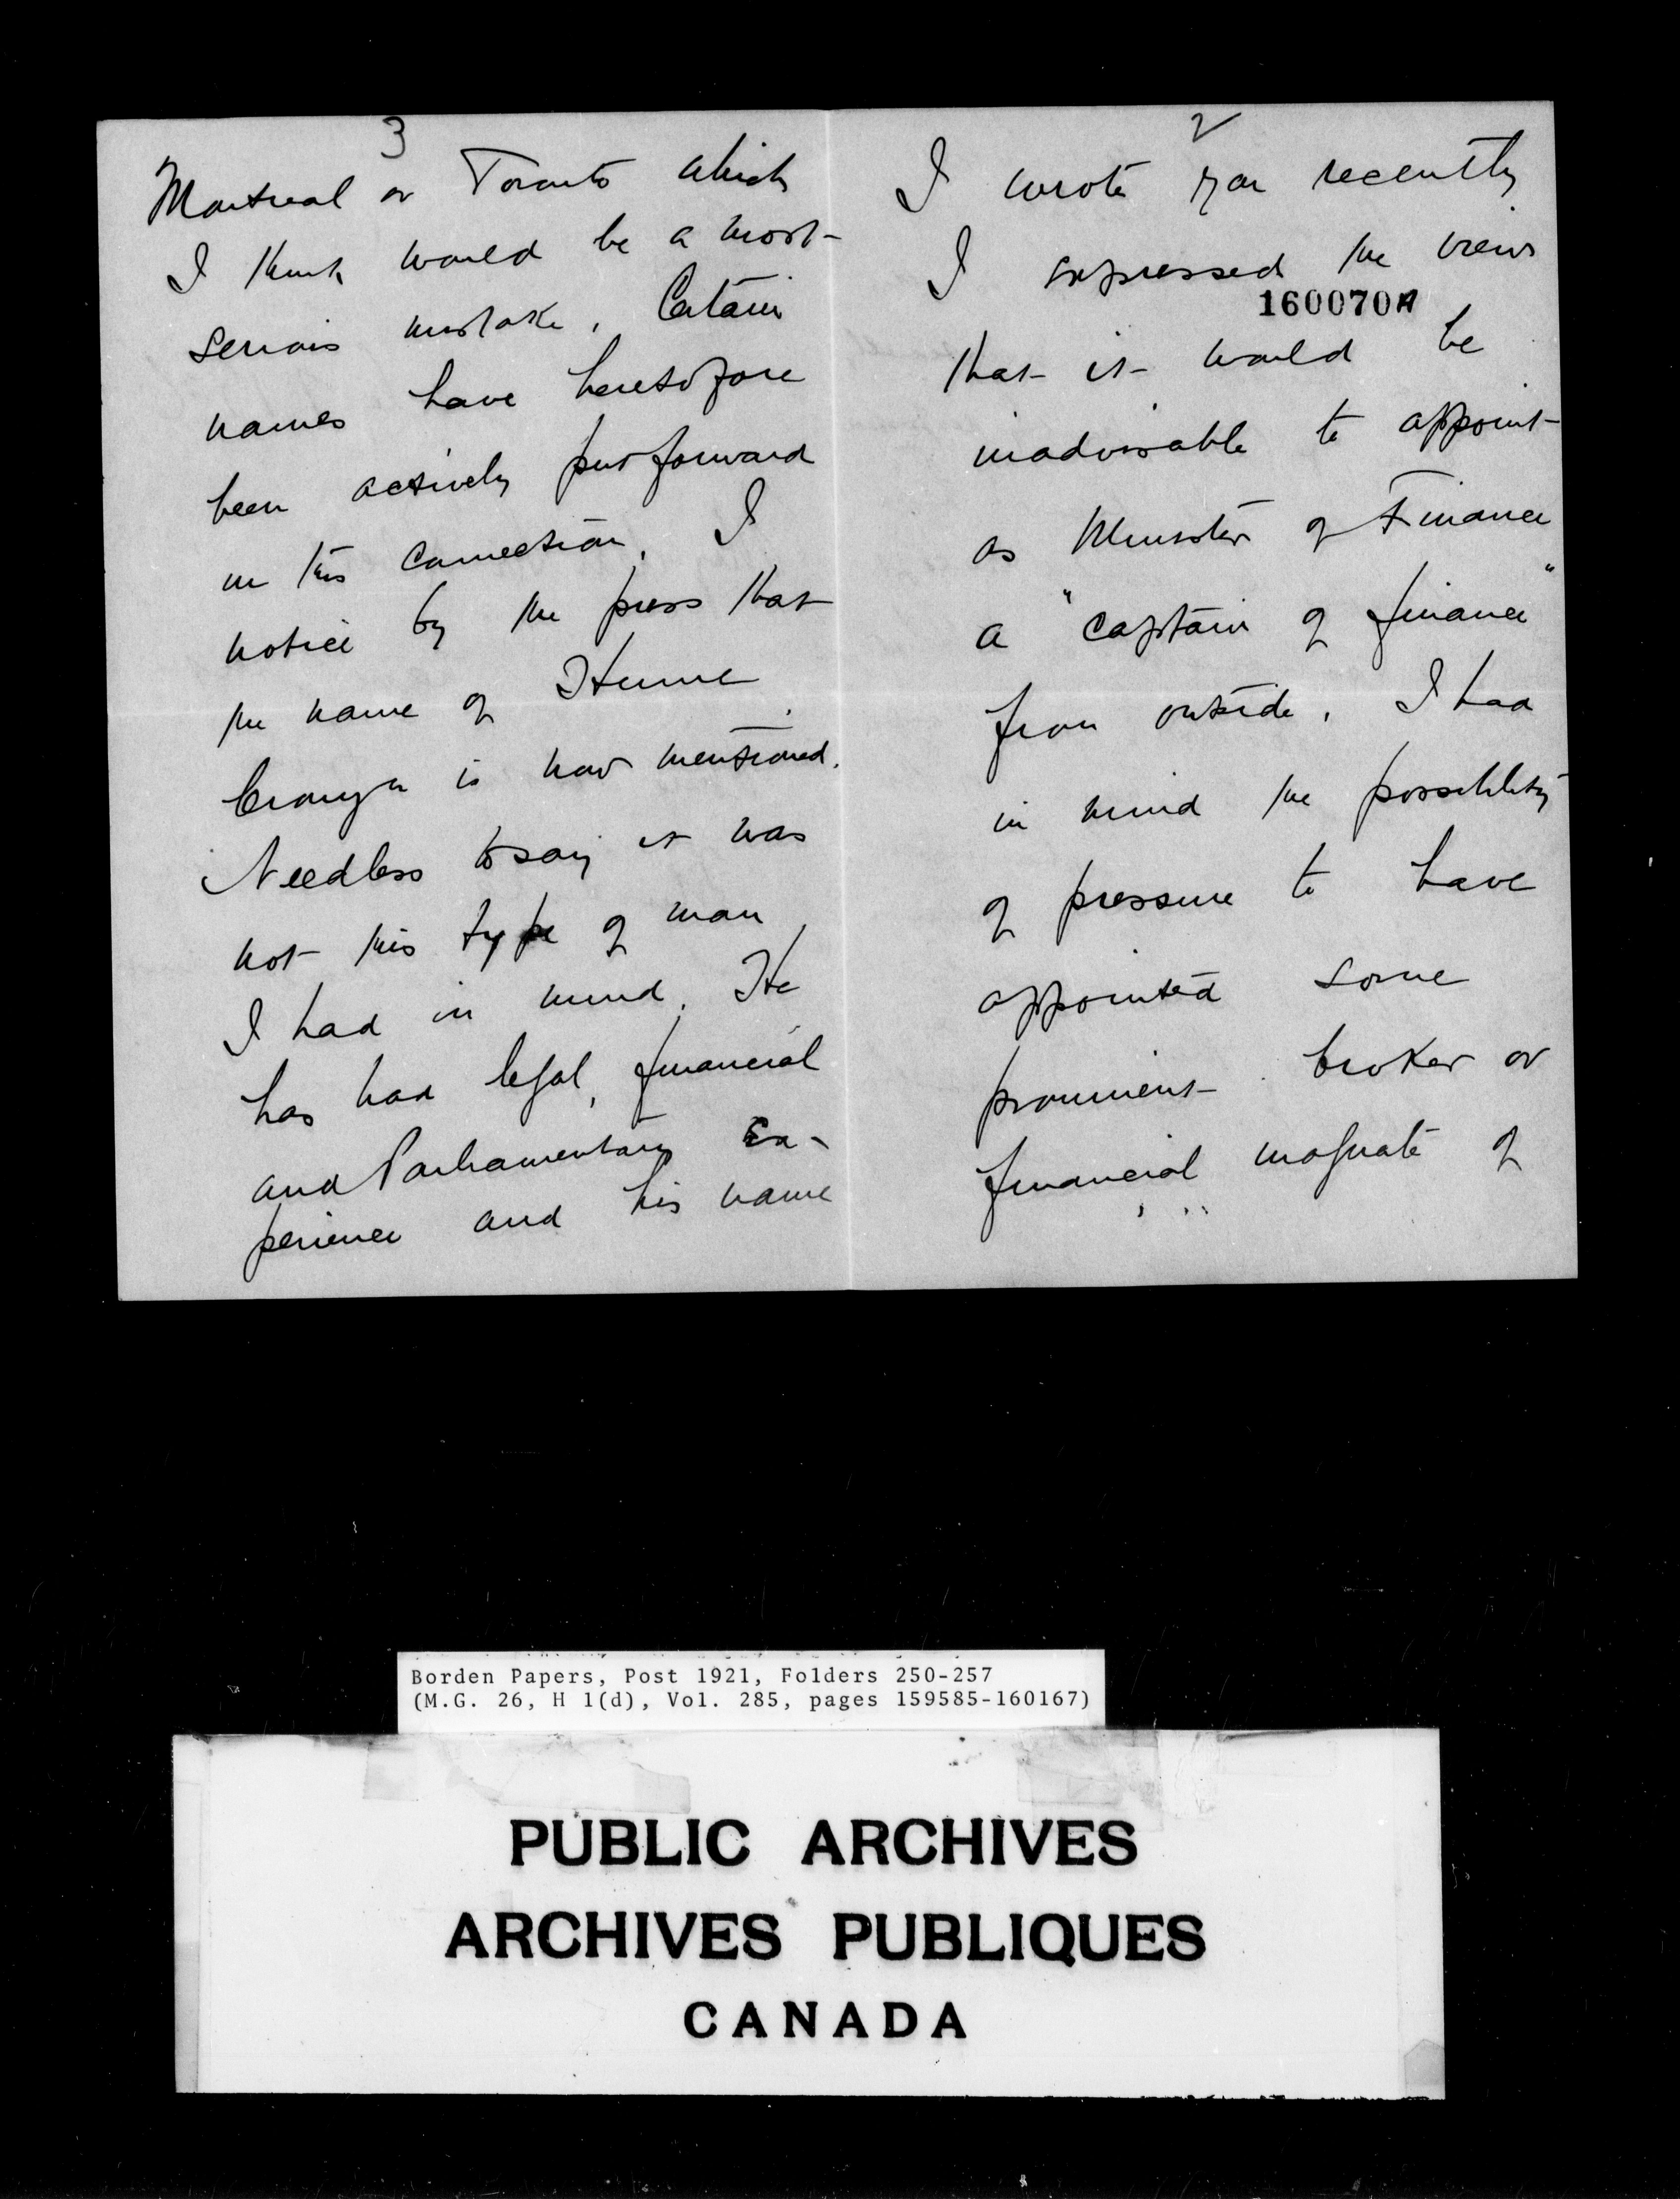 2
I wrote you recently
I expressed the view
160070A
that it would be
inadvisable to appoint
as Minister of Finance
a "captain of finance"
from outside. I had
in mind the possibility
of pressure to have
appointed some
prominent broker or
financial magnate of
3
Montreal or Toronto which
I think would be a most
serious mistake. Certain
names have heretofore
been actively put forward
in this connection. I
notice by the press that
the name of Hume
Cronyn is now mentioned.
Needless to say it was
not this type of man
I had in mind. He
has had legal, financial
and Parliamentary Ex-
perience and his name
Borden Papers, Post 1921, Folders 250-257
(M.G. 26, H 1(d), Vol. 285, pages 159585-160167)
PUBLIC ARCHIVES
ARCHIVES PUBLIQUES
CANADA